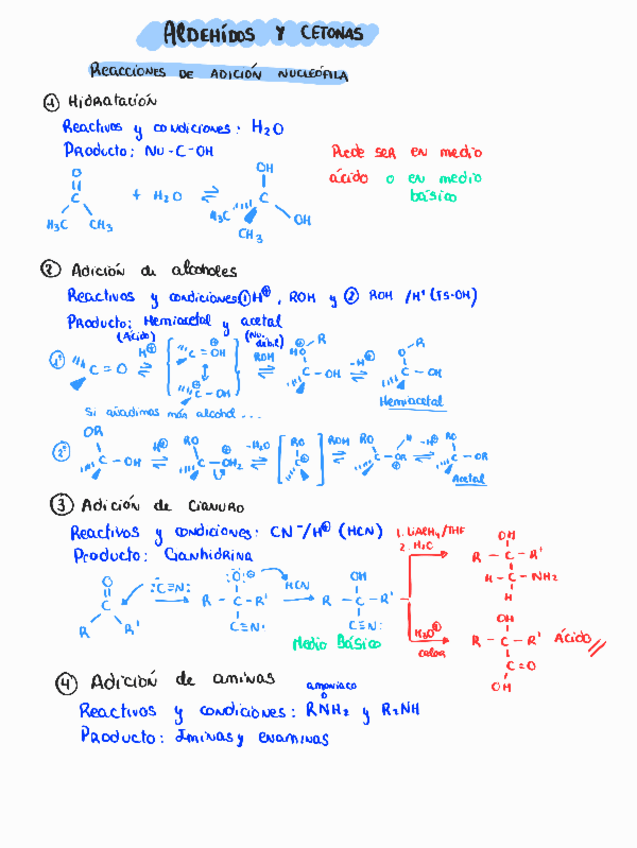 Aldehídos y cetonas
Reacciones de adición nucleófila
1 Hidratación
Reactivos y condiciones: H2O
Producto: Nu-C-OH
Puede ser en medio
ácido o en medio
básico
O
C
H3C CH3
+ H2O ⇌
OH
C
H3C
OH
CH3
2 Adición de alcoholes
Reactivos y condiciones: 1 H⊕, ROH y 2 ROH /H+ (TS-OH)
Producto: Hemiacetal y acetal
(Ácido)
(Nu. débil)
1º C=O H⊕ ⇌ [C=OH ⊕ ↕ C-OH ⊕] ROH ⇌ HO-R ⊕ C-OH -H⊕ ⇌ O-R C-OH
Hemiacetal
Si añadimos más alcohol...
2º OR C-OH H⊕ ⇌ RO C-OH2 ⊕ -H2O ⇌ [RO C⊕] ROH ⇌ RO C-OR H ⊕ -H⊕ ⇌ RO C-OR
Acetal
3 Adición de cianuro
Reactivos y condiciones: CN-/H⊕ (HCN)
Producto: Cianhidrina
O
C
R R'
:C≡N:
:O:⊖
R-C-R'
C≡N:
HCN
OH
R-C-R'
C≡N:
Medio Básico
1. LiAlH4/THF
2. H2O
OH
R-C-R'
H-C-NH2
H
H3O⊕
calor
OH
R-C-R' Ácido
C=O
OH
4 Adición de aminas
amoniaco
o
Reactivos y condiciones: RNH2 y R2NH
Producto: Iminas y enaminas